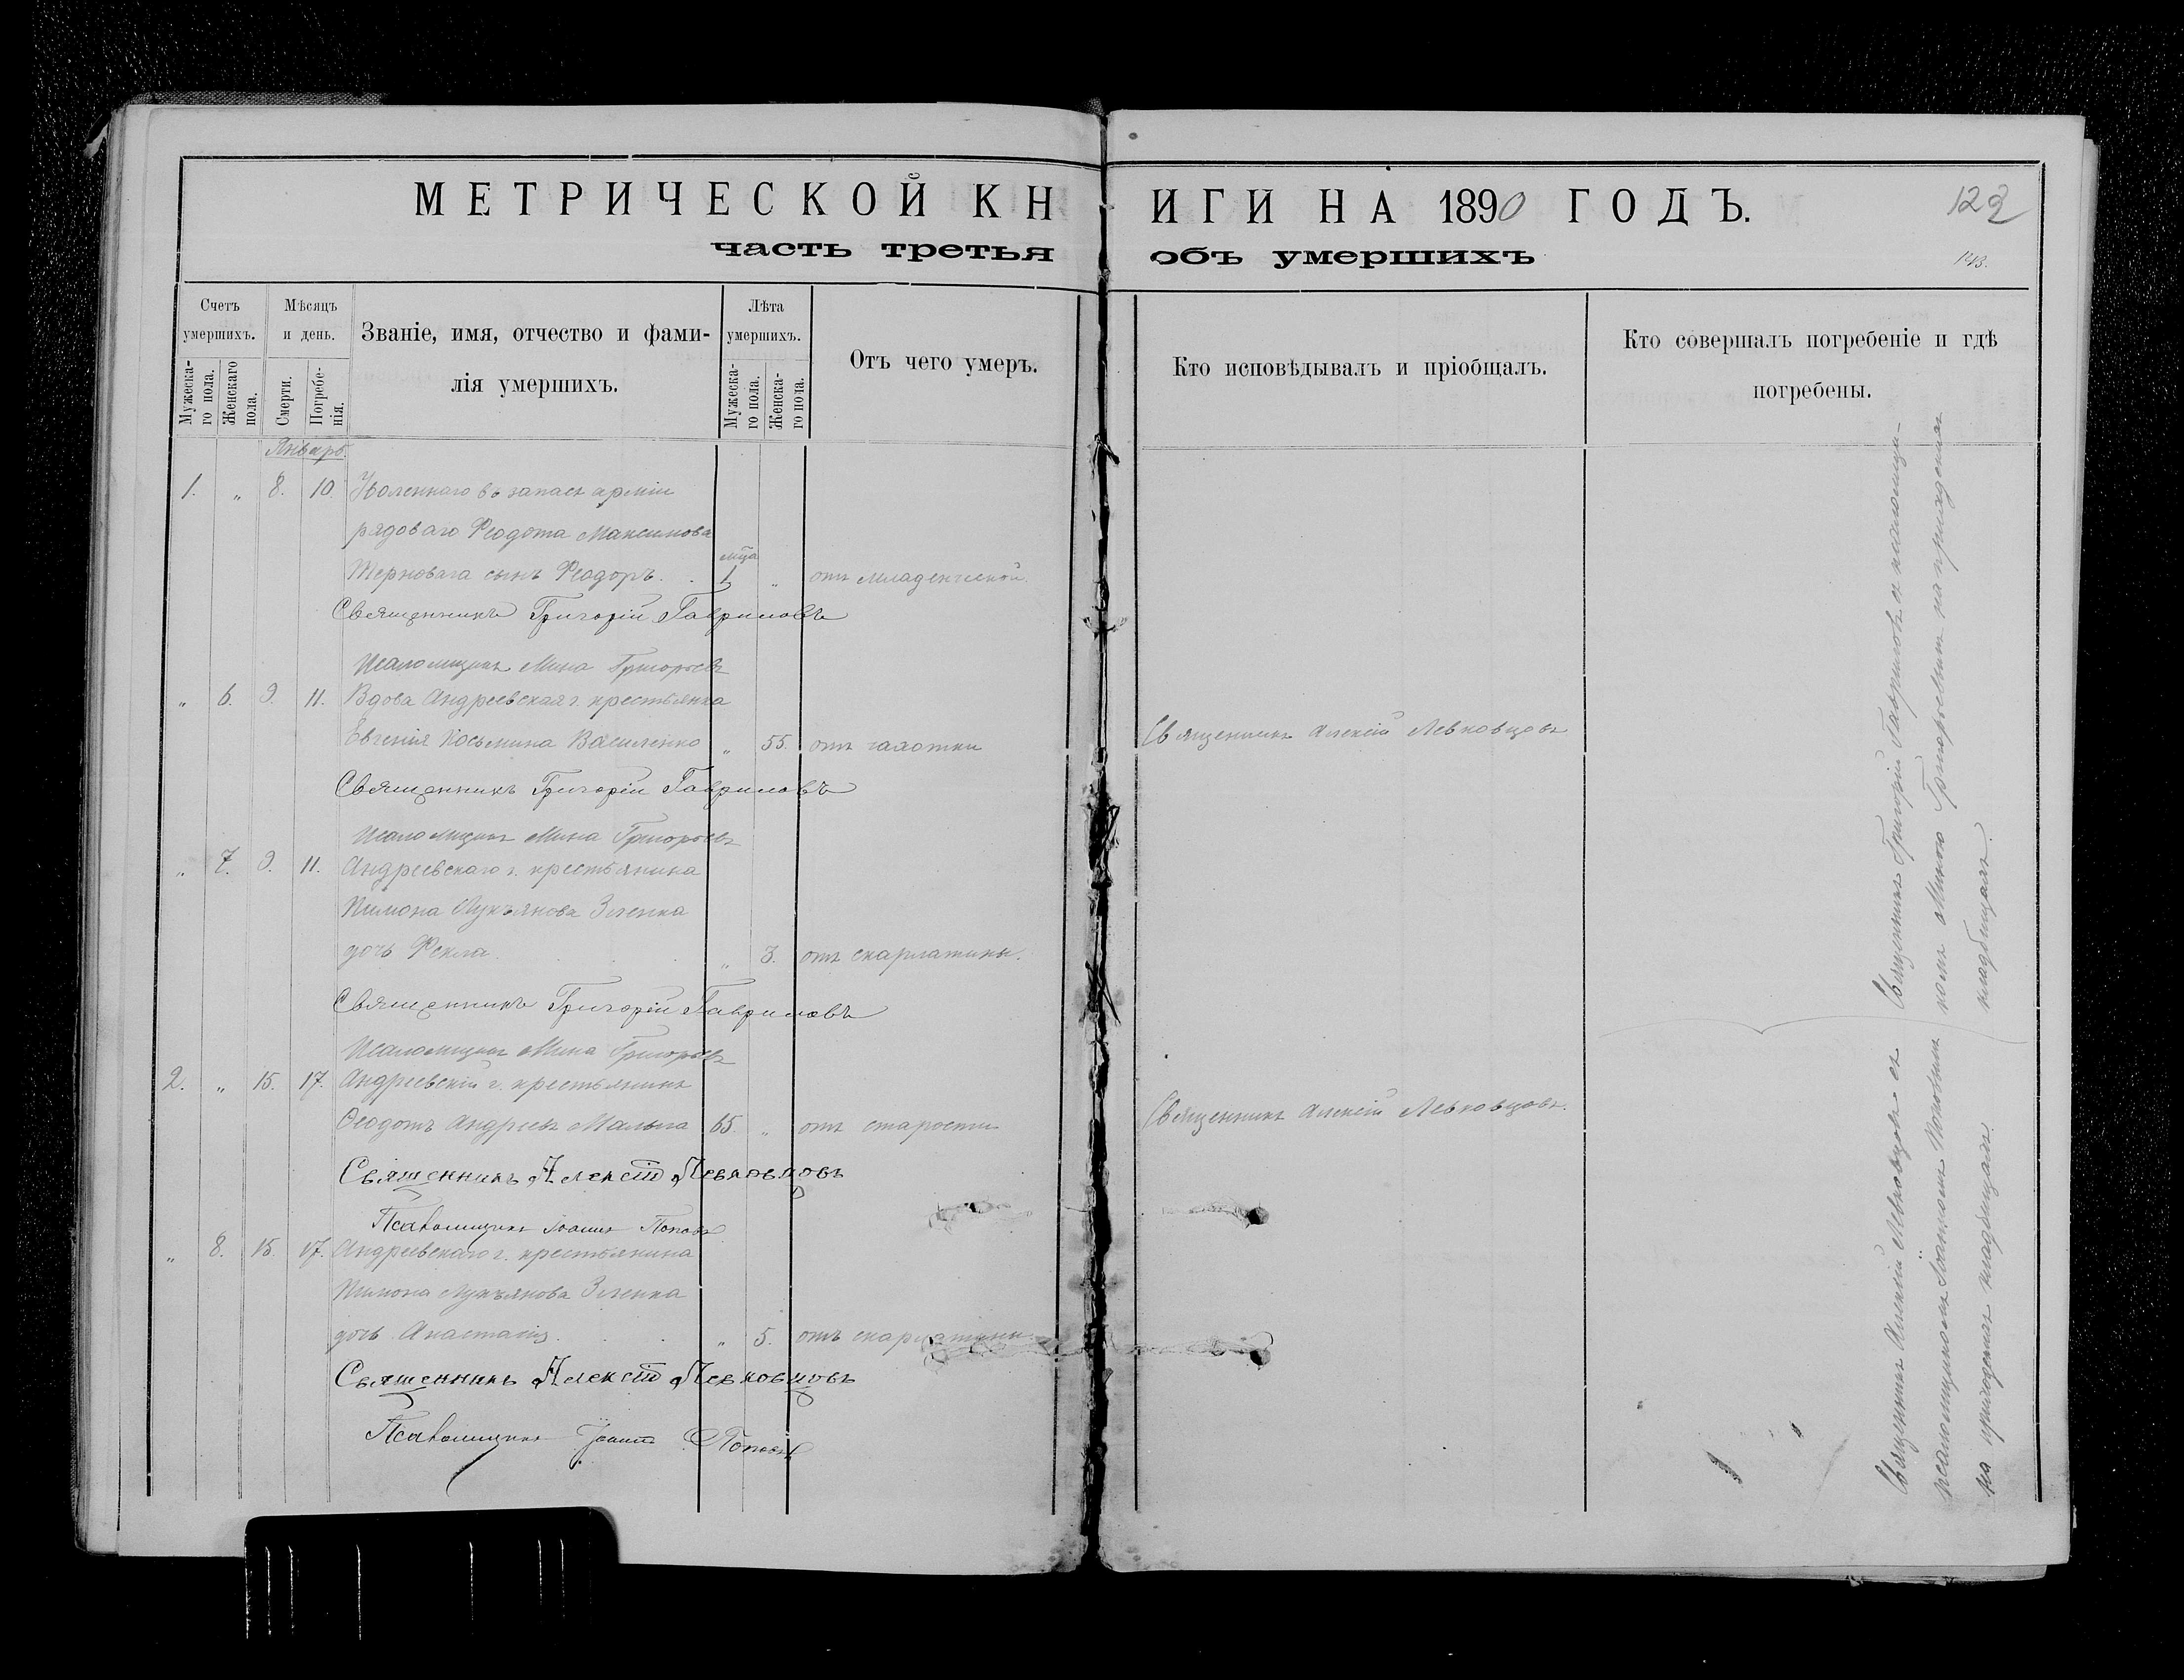 МЕТРИЧЕСКОЙ КНИГИ НА 1890 ГОДЪ.
122
часть третья объ умершихъ
Счетъ умершихъ.
Мужеска-го пола.
Женскаго пола.
Мѣсяцъ и день.
Смерти.
Погребе-нія.
Званіе, имя, отчество и фами-
лія умершихъ.
Лѣта умершихъ.
Мужеска-го пола.
Женска-го пола.
Отъ чего умеръ.
Кто исповѣдывалъ и пріобщалъ.
Кто совершалъ погребеніе и гдѣ
погребены.
Январь.
1. „ 8. 10. Уволеннаго въ запасъ арміи
рядоваго Ѳеодота Максимова
Терноваго сынъ Ѳеодоръ. „ отъ младенческой.
Священникъ Григорій Гавриловъ
Псаломщикъ Мина Григорьевъ
„ 6. 9. 11. Вдова Андреевская г. крестьянка
Евгенія Косьмина Василенко „ 55. отъ чахотки Священникъ Алексій Левковцовъ
Священникъ Григорій Гавриловъ
Псаломщикъ Мина Григорьевъ
„ 7. 9. 11. Андреевскаго г. крестьянина
Пимона Лукъянова Зленка
дочь Ѳекла. „ 3. отъ скарлатины.
Священникъ Григорій Гавриловъ
Псаломщикъ Мина Григорьевъ
2. „ 15. 17. Андреевскій г. крестьянинъ
Ѳеодотъ Андреевъ Малыга 65. „ отъ старости Священникъ Алексій Левковцовъ.
Священникъ Алексій Левковцовъ
Псаломщикъ Іоаннъ Поповъ
„ 8. 15. 17. Андреевскаго г. крестьянина
Пимона Лукъянова Зленка
дочь Анастасія. „ 5. отъ скарлатины.
Священникъ Алексій Левковцовъ
Псаломщикъ Іоаннъ Поповъ
Священникъ Григорій Гавриловъ съ псаломщи-
комъ Миною Григорьевымъ на приходскомъ
кладбищѣ.
Священникъ Алексій Левковцовъ съ
псаломщикомъ Іоанномъ Поповымъ
на приходскомъ кладбищѣ.